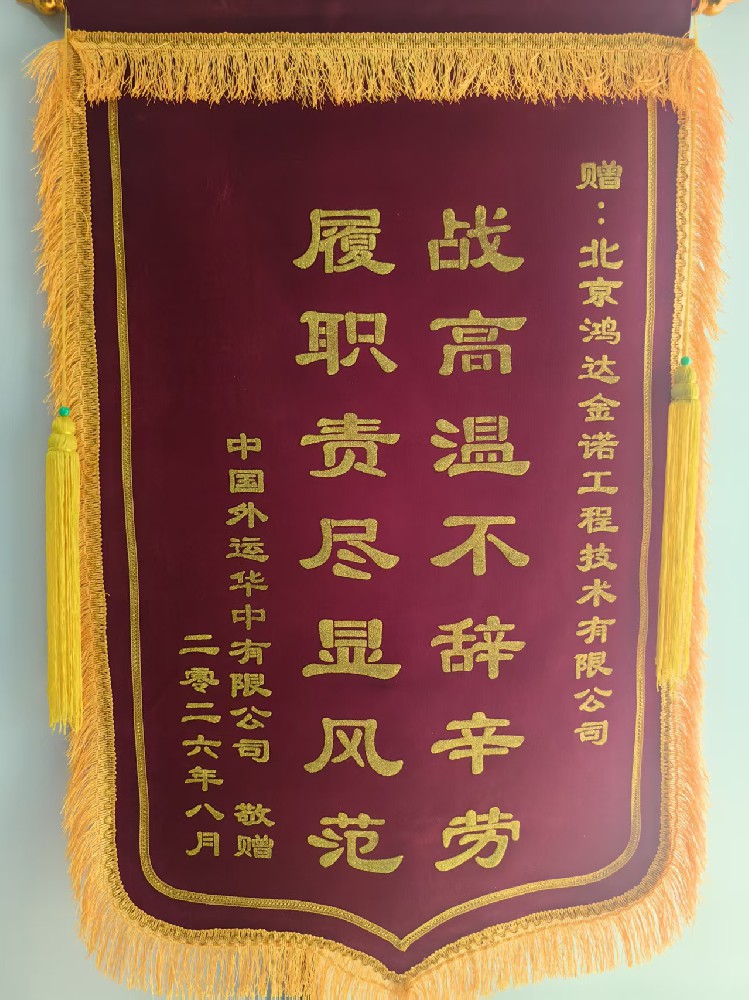 赠：北京鸿达金诺工程技术有限公司
战高温不辞辛劳
履职责尽显风范
中国外运华中有限公司 敬赠
二零二六年八月